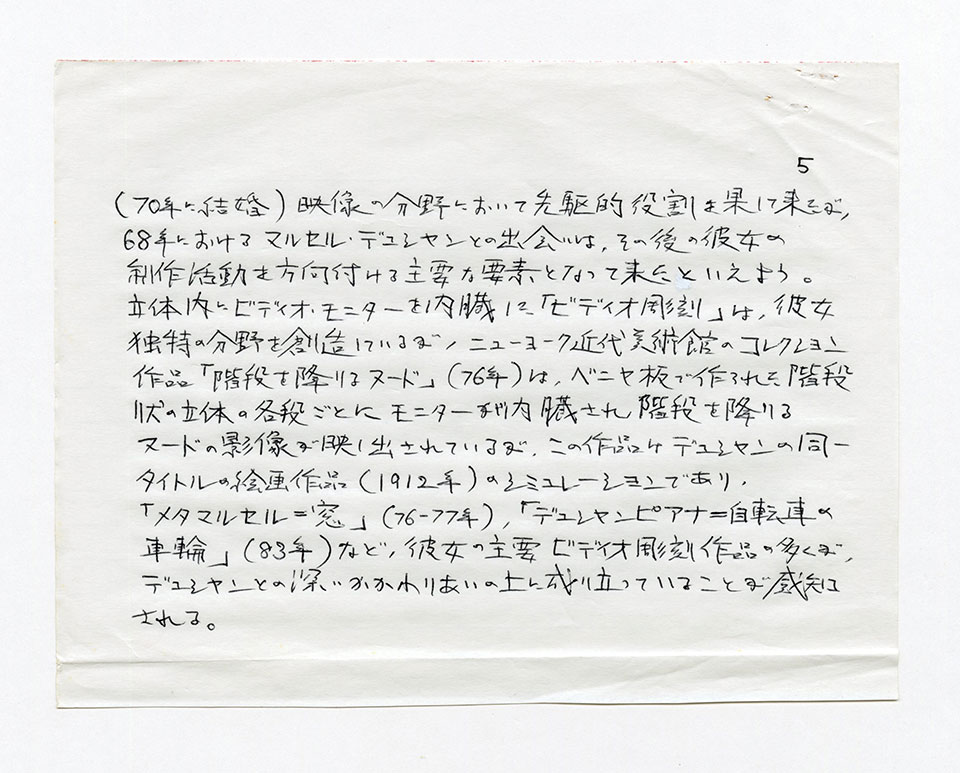 5
(70年に結婚)映像の分野において先駆的役割を果して来たが,
68年における マルセル・デュシャンとの出会いは, その後の彼女の
制作活動を方向付ける主要な要素となって来たといえよう。
立体内にビディオ・モニターを内臓した「ビディオ彫刻」は, 彼女
独特の分野を創造しているが, ニューヨーク近代美術館のコレクション
作品「階段を降りるヌード」(76年)は, ベニヤ板で作られた階段
状の立体の各段ごとにモニターが内臓され階段を降りる
ヌードの影像が映し出されているが, この作品はデュシャンの同一
タイトルの絵画作品(1912年)のシミュレーションであり,
「メタマルセル=窓」(76-77年), 「デュシャンピアナ=自転車の
車輪」(83年)など, 彼女の主要ビディオ彫刻作品の多くが,
デュシャンとの深いかかわりあいの上に成り立っていることが感知
される。